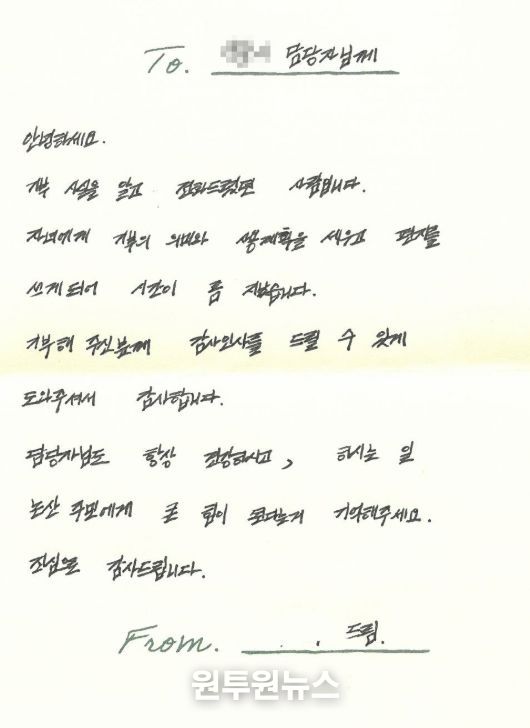 To. 담당자님께
안녕하세요.
기부 사실을 알고 전화드렸던 사람입니다.
자녀에게 기부의 의미와 사용계획을 세우고 편지를
쓰게되어 시간이 좀 지났습니다.
기부해 주신분께 감사인사를 드릴 수 있게
도와주셔서 감사합니다.
담당자님도 항상 건강하시고, 하시는 일
논산 주민에게 큰 힘이 된다는거 기억해주세요.
진심으로 감사드립니다.
From. 드림.
원투원뉴스